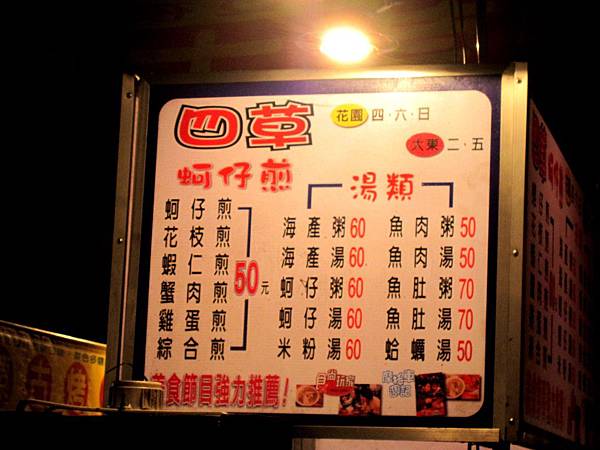 四草 花園 四.六.日
大東 二.五
蚵仔煎
湯類
蚵仔煎
花枝煎
蝦仁煎
蟹肉煎
雞蛋煎
綜合煎
50元
海產粥60
海產湯60
蚵仔粥60
蚵仔湯60
米粉湯60
魚肉粥50
魚肉湯50
魚肚粥70
魚肚湯70
蛤蠣湯50
美食節目強力推薦!